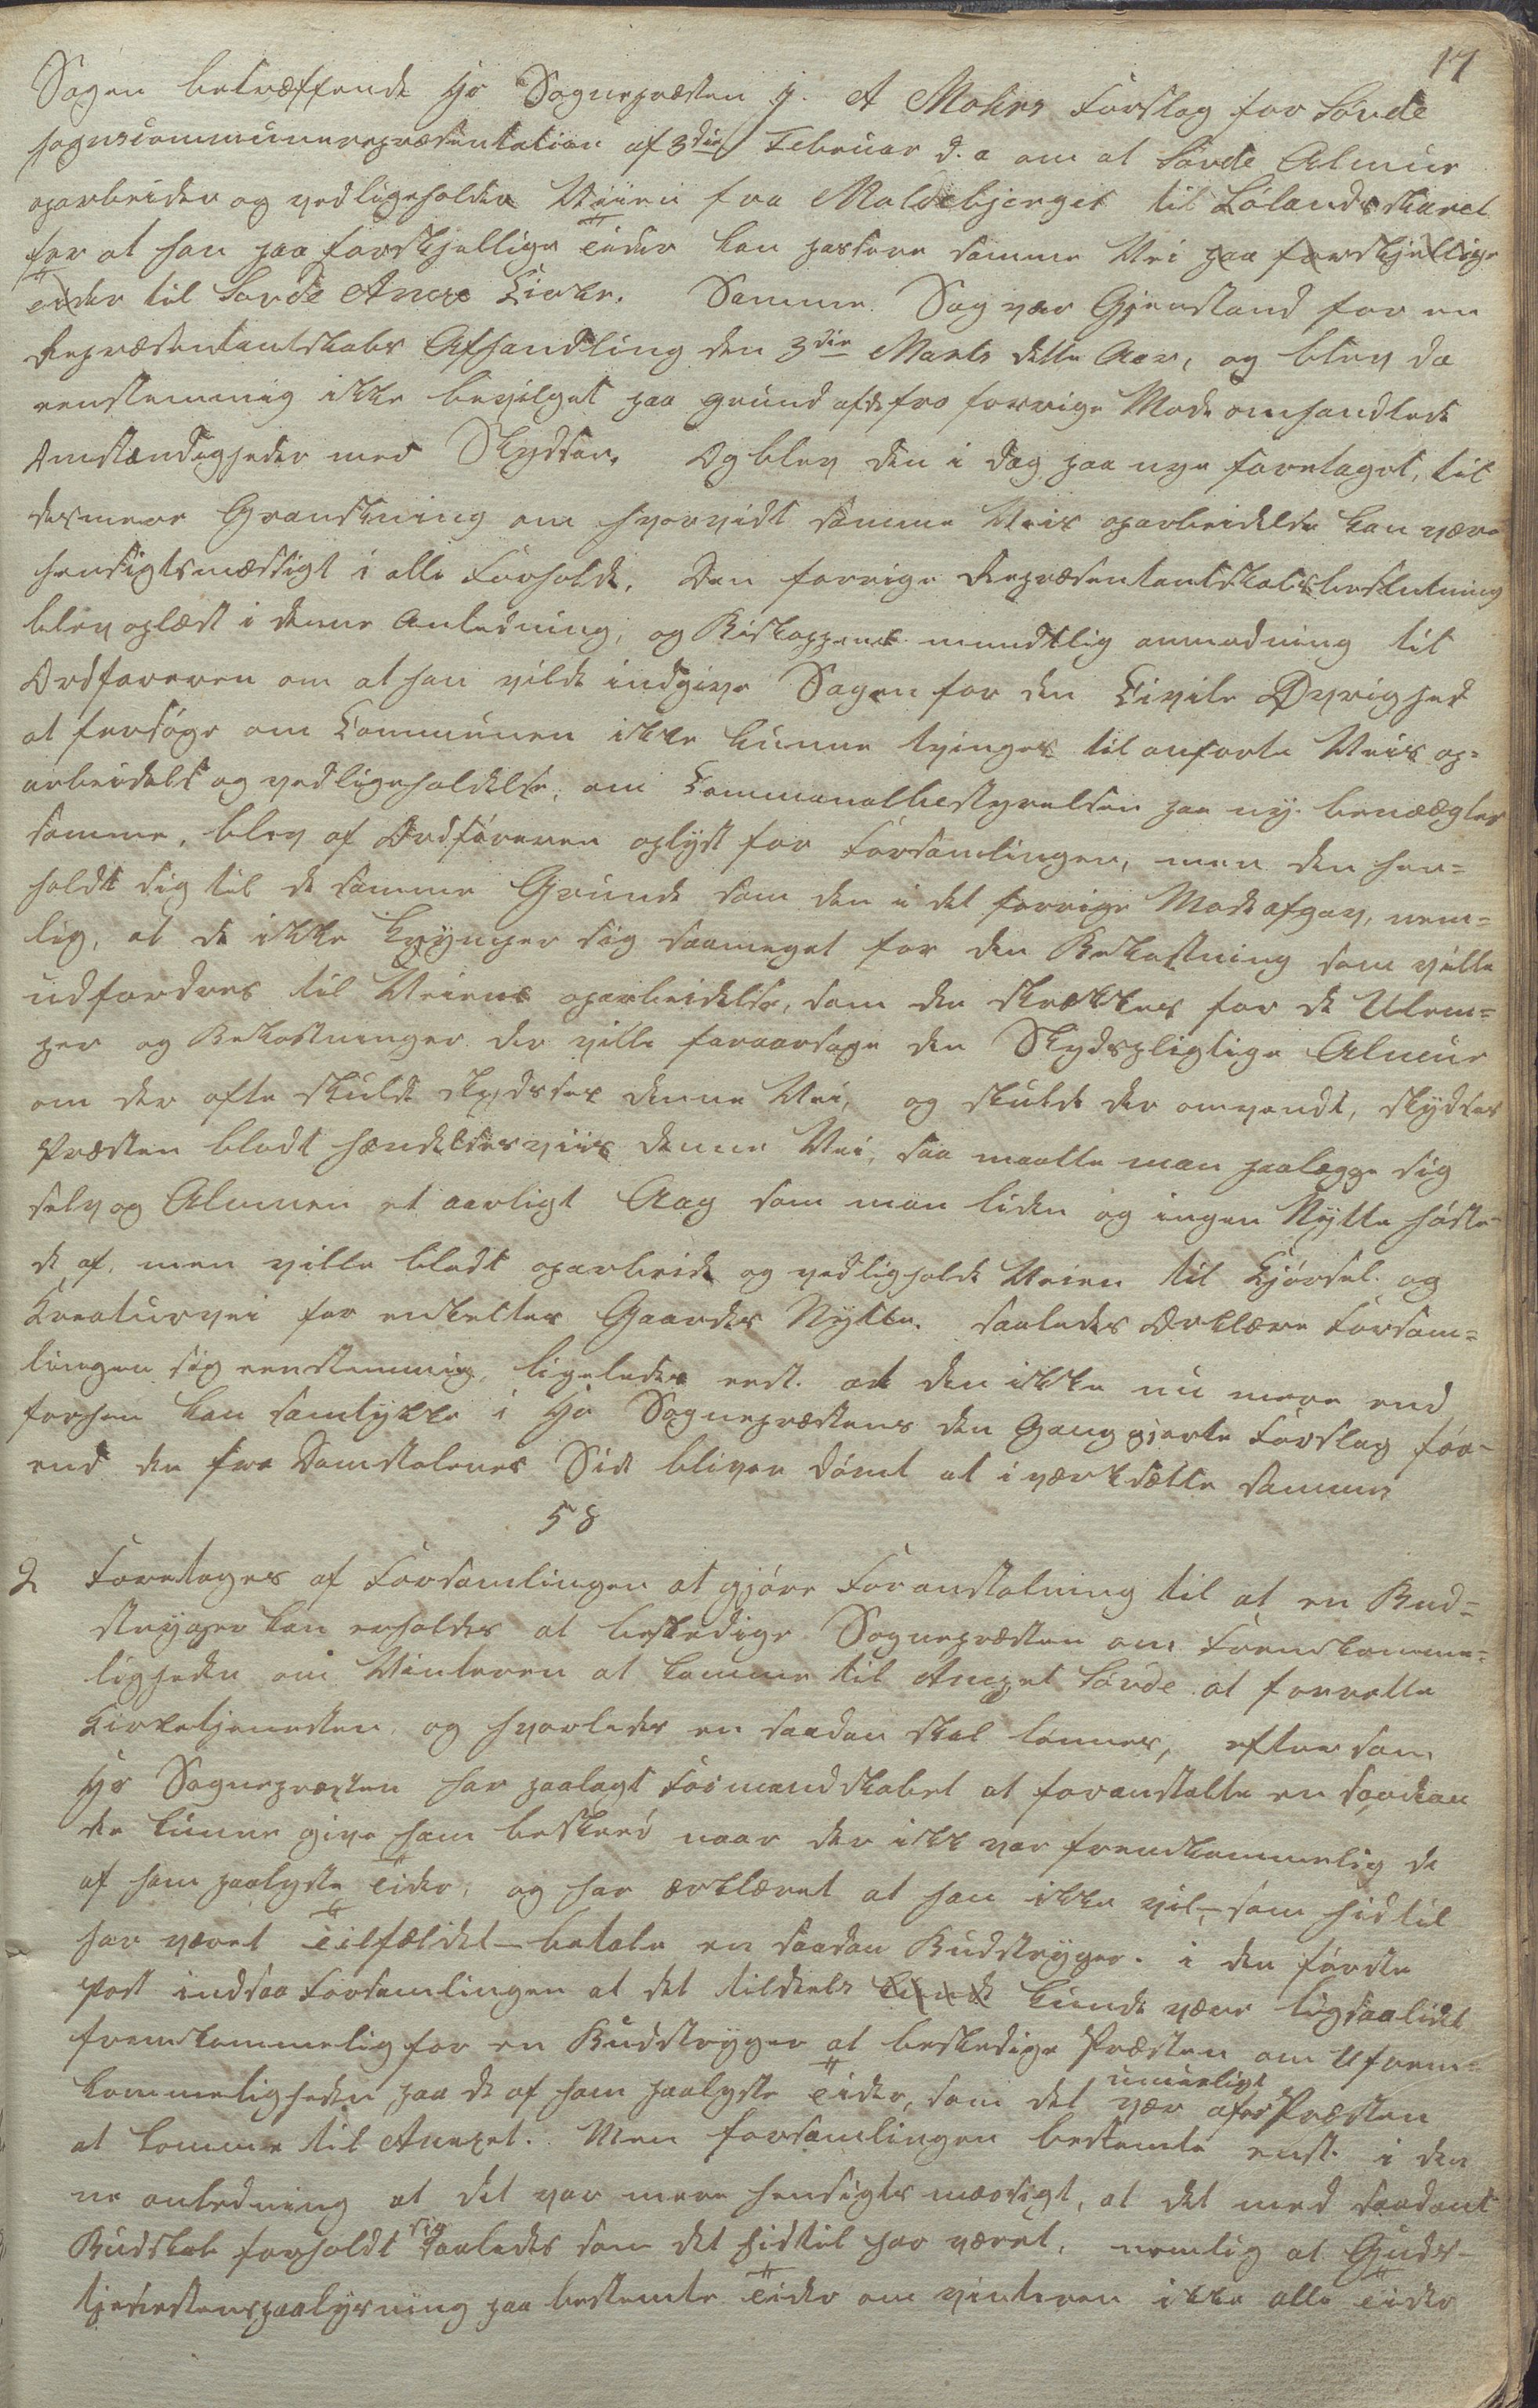 17
Sagen betræffende Hr Sognepræsten J. A Mohrs Forslag for Søvde
sognscommunerepræsentation af 3die Februar d. a om at Søvde Almue
oparbeider og vedligeholder Veiien fra Maldebjerget til Lølandsskaret
for at han paa forskjellige Tider kan passere samme Vei paa forskjellige
Tider til Søvde Anex Kirke. Samme Sag var Gjenstand for en
Repræsentantskabs Afhandling den 3die Marts dette Aar, og blev da
eenstemmig ikke bevilget paa grund af de fra forrige Møde omhandlede
Omstændigheder med Skydsen. Og blev den i dag paa nye foretaget, til
desmere Granskning om hvorvidt samme Veis oparbeidelse kan være
hensigtsmæssigt i alle Forholde. Den forrige Repræsentantskabsbeslutning
blev oplæst i denne Anledning, og Biskoppens mundtlig anmodning til
Ordføreren om at han vilde indgive Sagen for den Civile Øvrighed
at forsøge om Communen ikke kunne tvinges til anførte Veis op=
arbeidelse og vedligeholdelse, om Communalbestyrelsen paa ny benægter
samme, blev af Ordføreren oplyst for Forsamlingen, men den hen=
holdt sig til de samme Grunde som den i det forrige Møde afgav, nem=
lig, at de ikke krymper sig saameget for den Bekostning som ville
udfordres til Veiens oparbeidelse, som den skrækkes for de Ulem=
per og Bekostninger der ville foraarsage den Skydspligtige Almue
om der ofte skulde skydses denne Vei, og skulde der omvendt, skydses
Præsten blodt hændelsesviis denne Vei, saa maatte man paalægge sig
selv og Almuen et aarligt Aag som man liden og ingen Nytte høste=
de af, men ville blodt oparbeide og vedligholde Veien til Kjørsel og
Kreaturvei for enkeltes Gaardes Nytte. saaledes Erklære Forsam=
lingen sig eenstemmig, ligeledes eenst. at den ikke nu mere end
forhen kan samtykke i Hr Sognepræstens den Gang gjorte Forslag før=
end den fra Domstolenes Side bliver dømt at iværksætte samme
58
2 Foretages af Forsamlingen at gjøre Foranstaltning til at en Bud=
stryger kan erholdes at beskedige Sognepræsten om Fremkomme=
ligheden om Vinteren at komme til Anexet Søvde at forrette
Kirketjenesten, og hvorledes en saadan skal lønnes, eftersom
Hr Sognepræsten har paalagt Formandskabet at foranstalte en saadan
der kunne give ham beskeed naar der ikke var fremkommelig de
af ham paalyste Tider, og har ærklæret at han ikke vil – som hidtil
har været Tilfældet – betale en saadan Budstryger. i den første
Post indsaa Forsamlingen at det tildeels kunde kunde være ligsaalidt
fremkommelig for en Budstryger at beskedige Præsten om Ufrem=
kommeligheden paa de af ham paalyste Tider, som det var umueligt for Præsten
at komme til Anexet. Men forsamlingen bestemte enst. i den
ne anledning at det var mere hensigtsmæssigt, at det med saadant
Budskab forholdt sig saaledes som det hidtil har været. nemlig at Guds=
tjenestenspaalysning paa bestemte Tider om vinteren ikke alle Tider